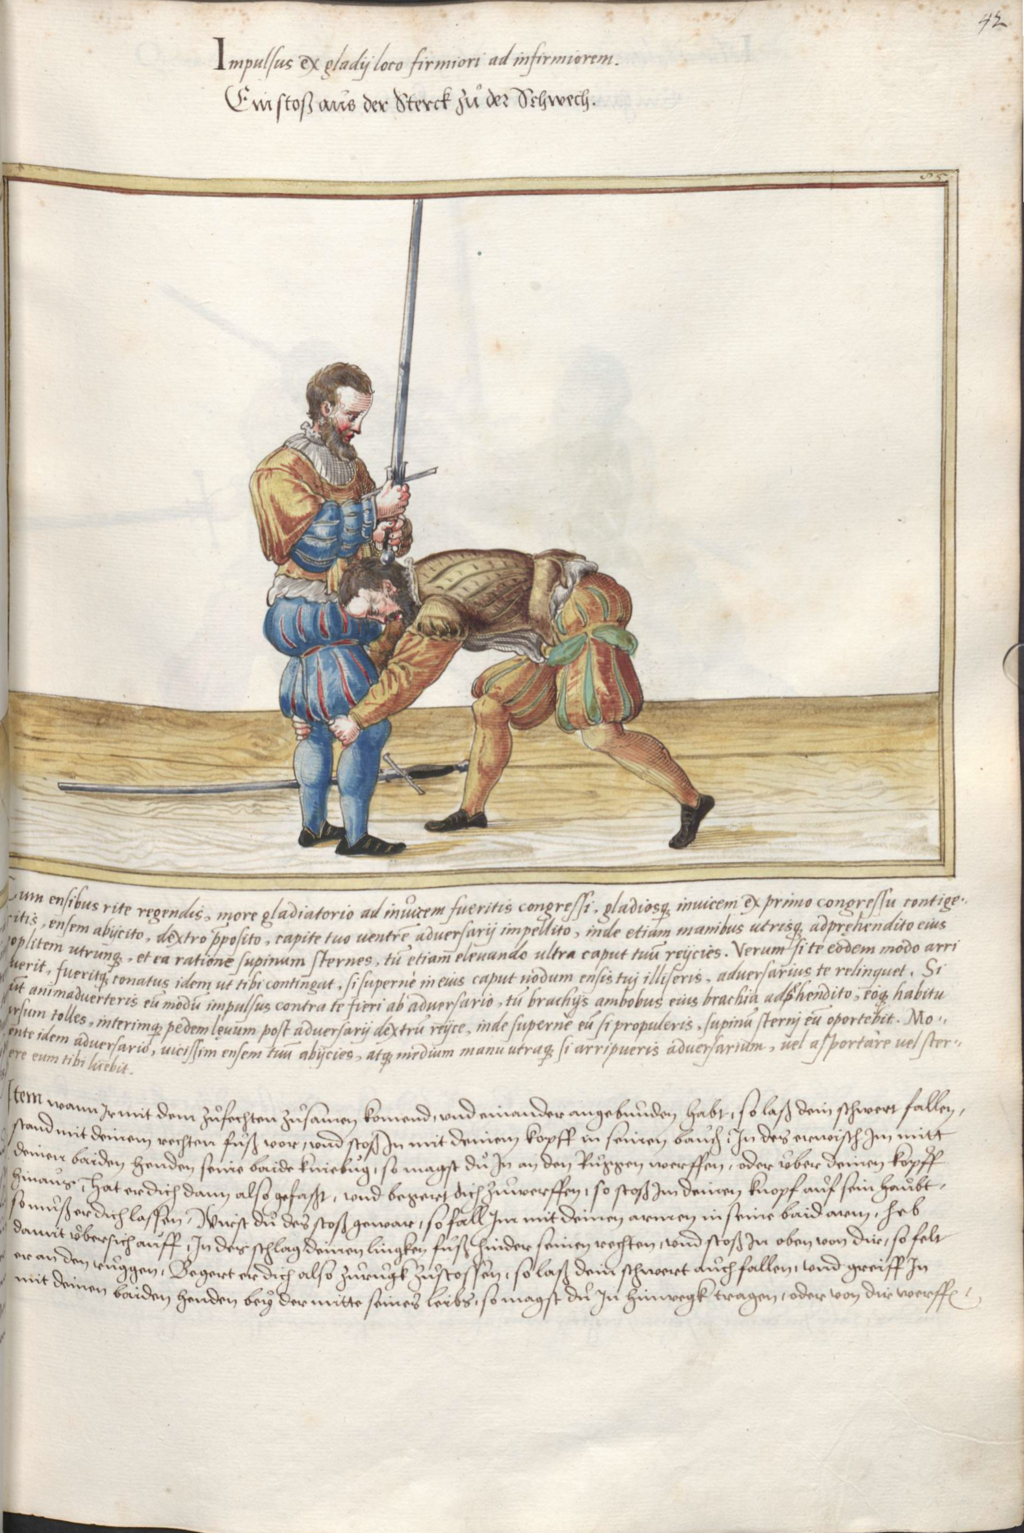 42
Impulsus ex gladij loco firmiori ad infirmiorem.
Ein stoß aus der Sterck zů der Schwech.
85
Cum ensibus rite regendis, more gladiatorio ad inuicem fueritis congressi, gladiosq, inuicem ex primo congressu contige-
ritis, ensem abijcito, dextro pposito, capite tuo ventre aduersarij impellito, inde etiam manibus utrisq, adprehendito eius
poplitem utrunq, et ea ratione supinum sternes, tu etiam eleuando ultra caput tuu reijcies. Verum si te eodem modo arri
puerit, fueritq, conatus idem ut tibi contingat, si superne in eius caput nodum ensis tuj illiseris, aduersarius te relinquet. Si
aut animaduerteris eu modu impulsus contra te fieri ab aduersario, tu brachijs ambobus eius brachia adphendito, eoq, habitu
rursum tolles, interimq, pedem leuum post aduersarij dextru reijce, inde superne eu si propuleris, supinu sternj eu oportebit. Mo-
ente idem aduersario, vicissim ensem tuu abijcies, atq, medium manu utraq, si arripueris aduersarium, uel asportare uel ster-
ere eum tibi licebit.
Item wann Ir mit dem zůfechten zůsamen komend, vnd einander angebunden habt, so laß dein schwert fallen,
stand mit deinem rechten fůß vor, vnd stoß In mit deinem kopff in seinen bauch, In des erwisch Im mitt
deinen baiden henden seine baide kniebůg, so magst dů In an den Růggen werffen, oder vber deinen kopff
hinaus, Hat er dich dann also gefaßt, vnd begert dich zůwerffen, so stoß Im deinen knopf auf sein haubt,
so můß er dich lassen, Wirst dů des stoß gewar, so fall Im mit deinen armen in seine baid arm, heb
damit vbersich auff, In des schlag deinen lingken fůß hinder seinen rechten, vnd stoß In oben von dir, so felt
er an den růggen, Begert er dich also zůrůgk zůstossen, so laß dein schwert auch fallen, vnd greiff In
mit deinen baiden henden bey der mitte seines leibs, so magst dů In hinwegk tragen, oder von dir werffe